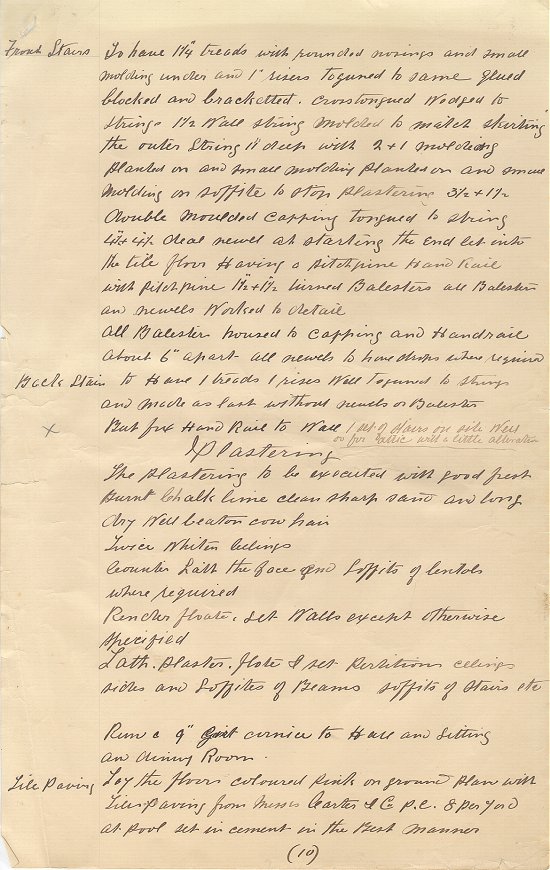 Front Stairs To have 1¼" treads with rounded nosings and small
molding under and 1" risers togued to same glued
blocked and bracketted. crosstongued Wedged to
strings 1½ Wall string molded to match skirting
the outer String 1½ deep with 2 + 1 molding
planted on and small molding planted on and small
Molding on soffite to stop plastering 3½ + 1½
double moulded Capping tongued to string
4½ + 4½ deal newel at starting the end let into
the tile floor Having a pitchpine Hand Rail
with pitchpine 1½ + 1½ turned Balesters all Balesters
and newels Worked to detail
all Balesters housed to Capping and Handrail
about 6" apart all newels to have drops where required
Back Stair to Have 1 treads 1 rises Well togued to strings
and made as last without newels or Balesters
x But fix Hand Rail to Wall 1 set of stairs on side West
as for attic with a little alteration
Plastering
The plastering to be executed with good fresh
Burnt Chalk lime clean sharp sand and long
dry Well beaton cow hair
Twice Whiten Ceilings
Counter Lath the face and Soffits of lentols
where required
Render floate & set Walls except otherwise
specified
Lath. plaster. flote & set Partitions ceilings
sides and Soffites of Beams soffits of Stairs etc
Run a 9" girt cornice to Hall and Sitting
and dining Room.
Tile Paving Lay the floors coloured pink on ground plan with
Tiles Paving from Messrs Carter & C P.C. 8 per yard
at pool set in cement in the Best manner
(10)